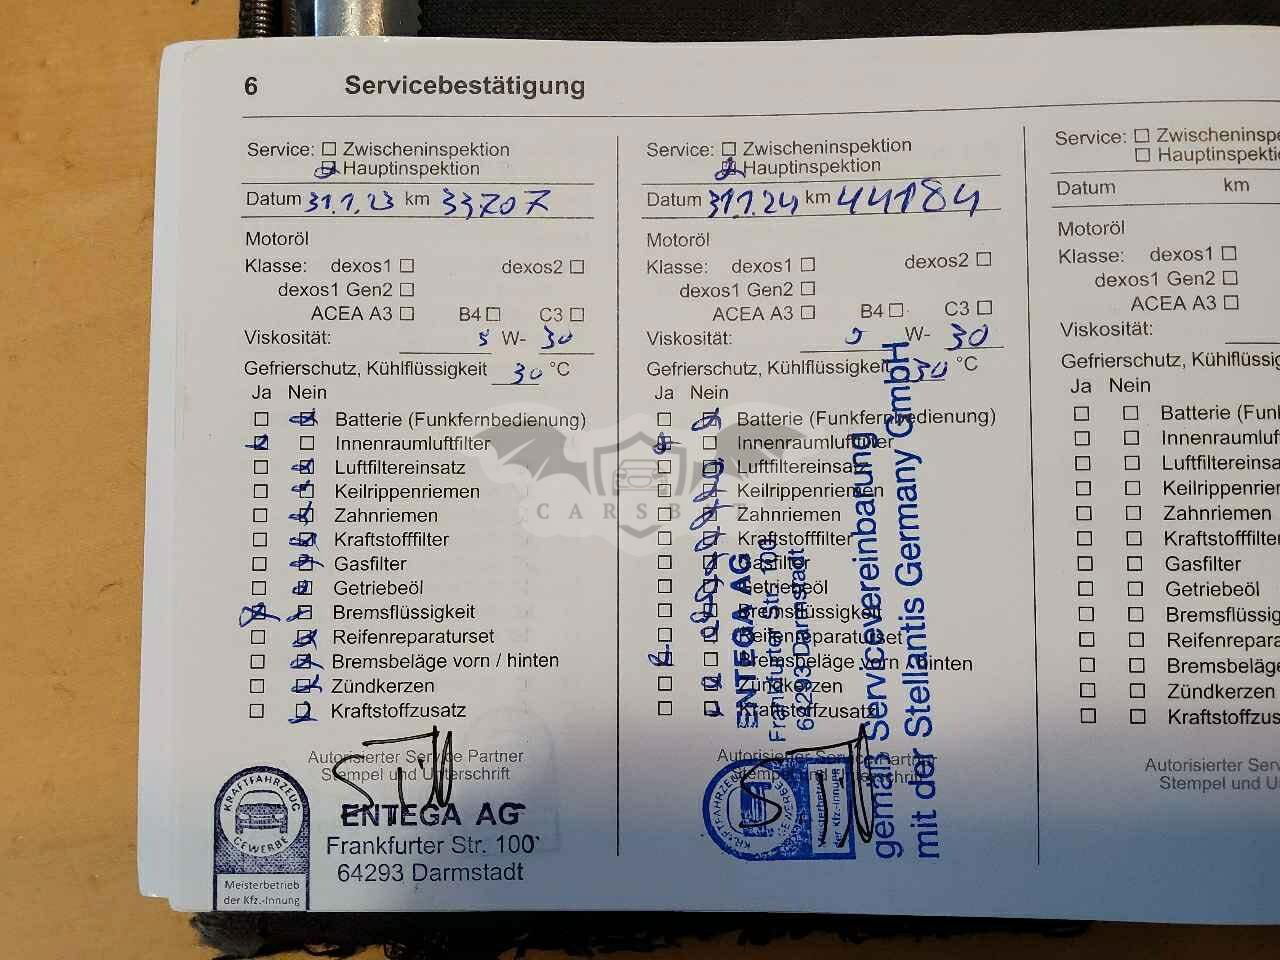 6 Servicebestätigung
Service: Zwischeninspektion
Hauptinspektion
Datum 31.1.23 km 33707
Motoröl
Klasse: dexos1 dexos2
dexos1 Gen2
ACEA A3 B4 C3
Viskosität: 5 W- 30
Gefrierschutz, Kühlflüssigkeit 30 °C
Ja Nein
Batterie (Funkfernbedienung)
Innenraumluftfilter
Luftfiltereinsatz
Keilrippenriemen
Zahnriemen
Kraftstofffilter
Gasfilter
Getriebeöl
Bremsflüssigkeit
Reifenreparaturset
Bremsbeläge vorn / hinten
Zündkerzen
Kraftstoffzusatz
Autorisierter Service Partner
Stempel und Unterschrift
KRAFTFAHRZEUG
GEWERBE
Meisterbetrieb
der Kfz.-Innung
ENTEGA AG
Frankfurter Str. 100
64293 Darmstadt
Service: Zwischeninspektion
Hauptinspektion
Datum 31.1.24 km 44184
Motoröl
Klasse: dexos1 dexos2
dexos1 Gen2
ACEA A3 B4 C3
Viskosität: W- 30
Gefrierschutz, Kühlflüssigkeit 30 °C
Ja Nein
Batterie (Funkfernbedienung)
Innenraumluftfilter
Luftfiltereinsatz
Keilrippenriemen
Zahnriemen
Kraftstofffilter
Gasfilter
Getriebeöl
Bremsflüssigkeit
Reifenreparaturset
Bremsbeläge vorn / hinten
Zündkerzen
Kraftstoffzusatz
Autorisierter Service Partner
Stempel und Unterschrift
ENTEGA AG
Frankfurter Str. 100
64293 Darmstadt
gemäß Servicevereinbarung
mit der Stellantis Germany GmbH
KRAFTFAHRZEUG
GEWERBE
Meisterbetrieb
der Kfz.-Innung
Service: Zwischeninspe
Hauptinspekti
Datum km
Motoröl
Klasse: dexos1
dexos1 Gen2
ACEA A3
Viskosität:
Gefrierschutz, Kühlflüssig
Ja Nein
Batterie (Fun
Innenraumluf
Luftfiltereinsa
Keilrippenrie
Zahnriemen
Kraftstofffilte
Gasfilter
Getriebeöl
Bremsflüssig
Reifenrepara
Bremsbeläge
Zündkerzen
Kraftstoffzus
Autorisierter Serv
Stempel und U